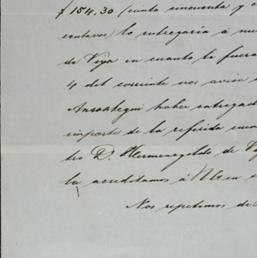 $ 154,30 (ciento cincuenta y c
centavos) lo entregaría á nu
de Vega en cuanto le fuera
4 del corriente nos avisa
Ansoategui haber entregad
importe de la referida cuen
tro D. Hermenegildo de Ve
la acreditamos á Uds en
Nos repetimos de